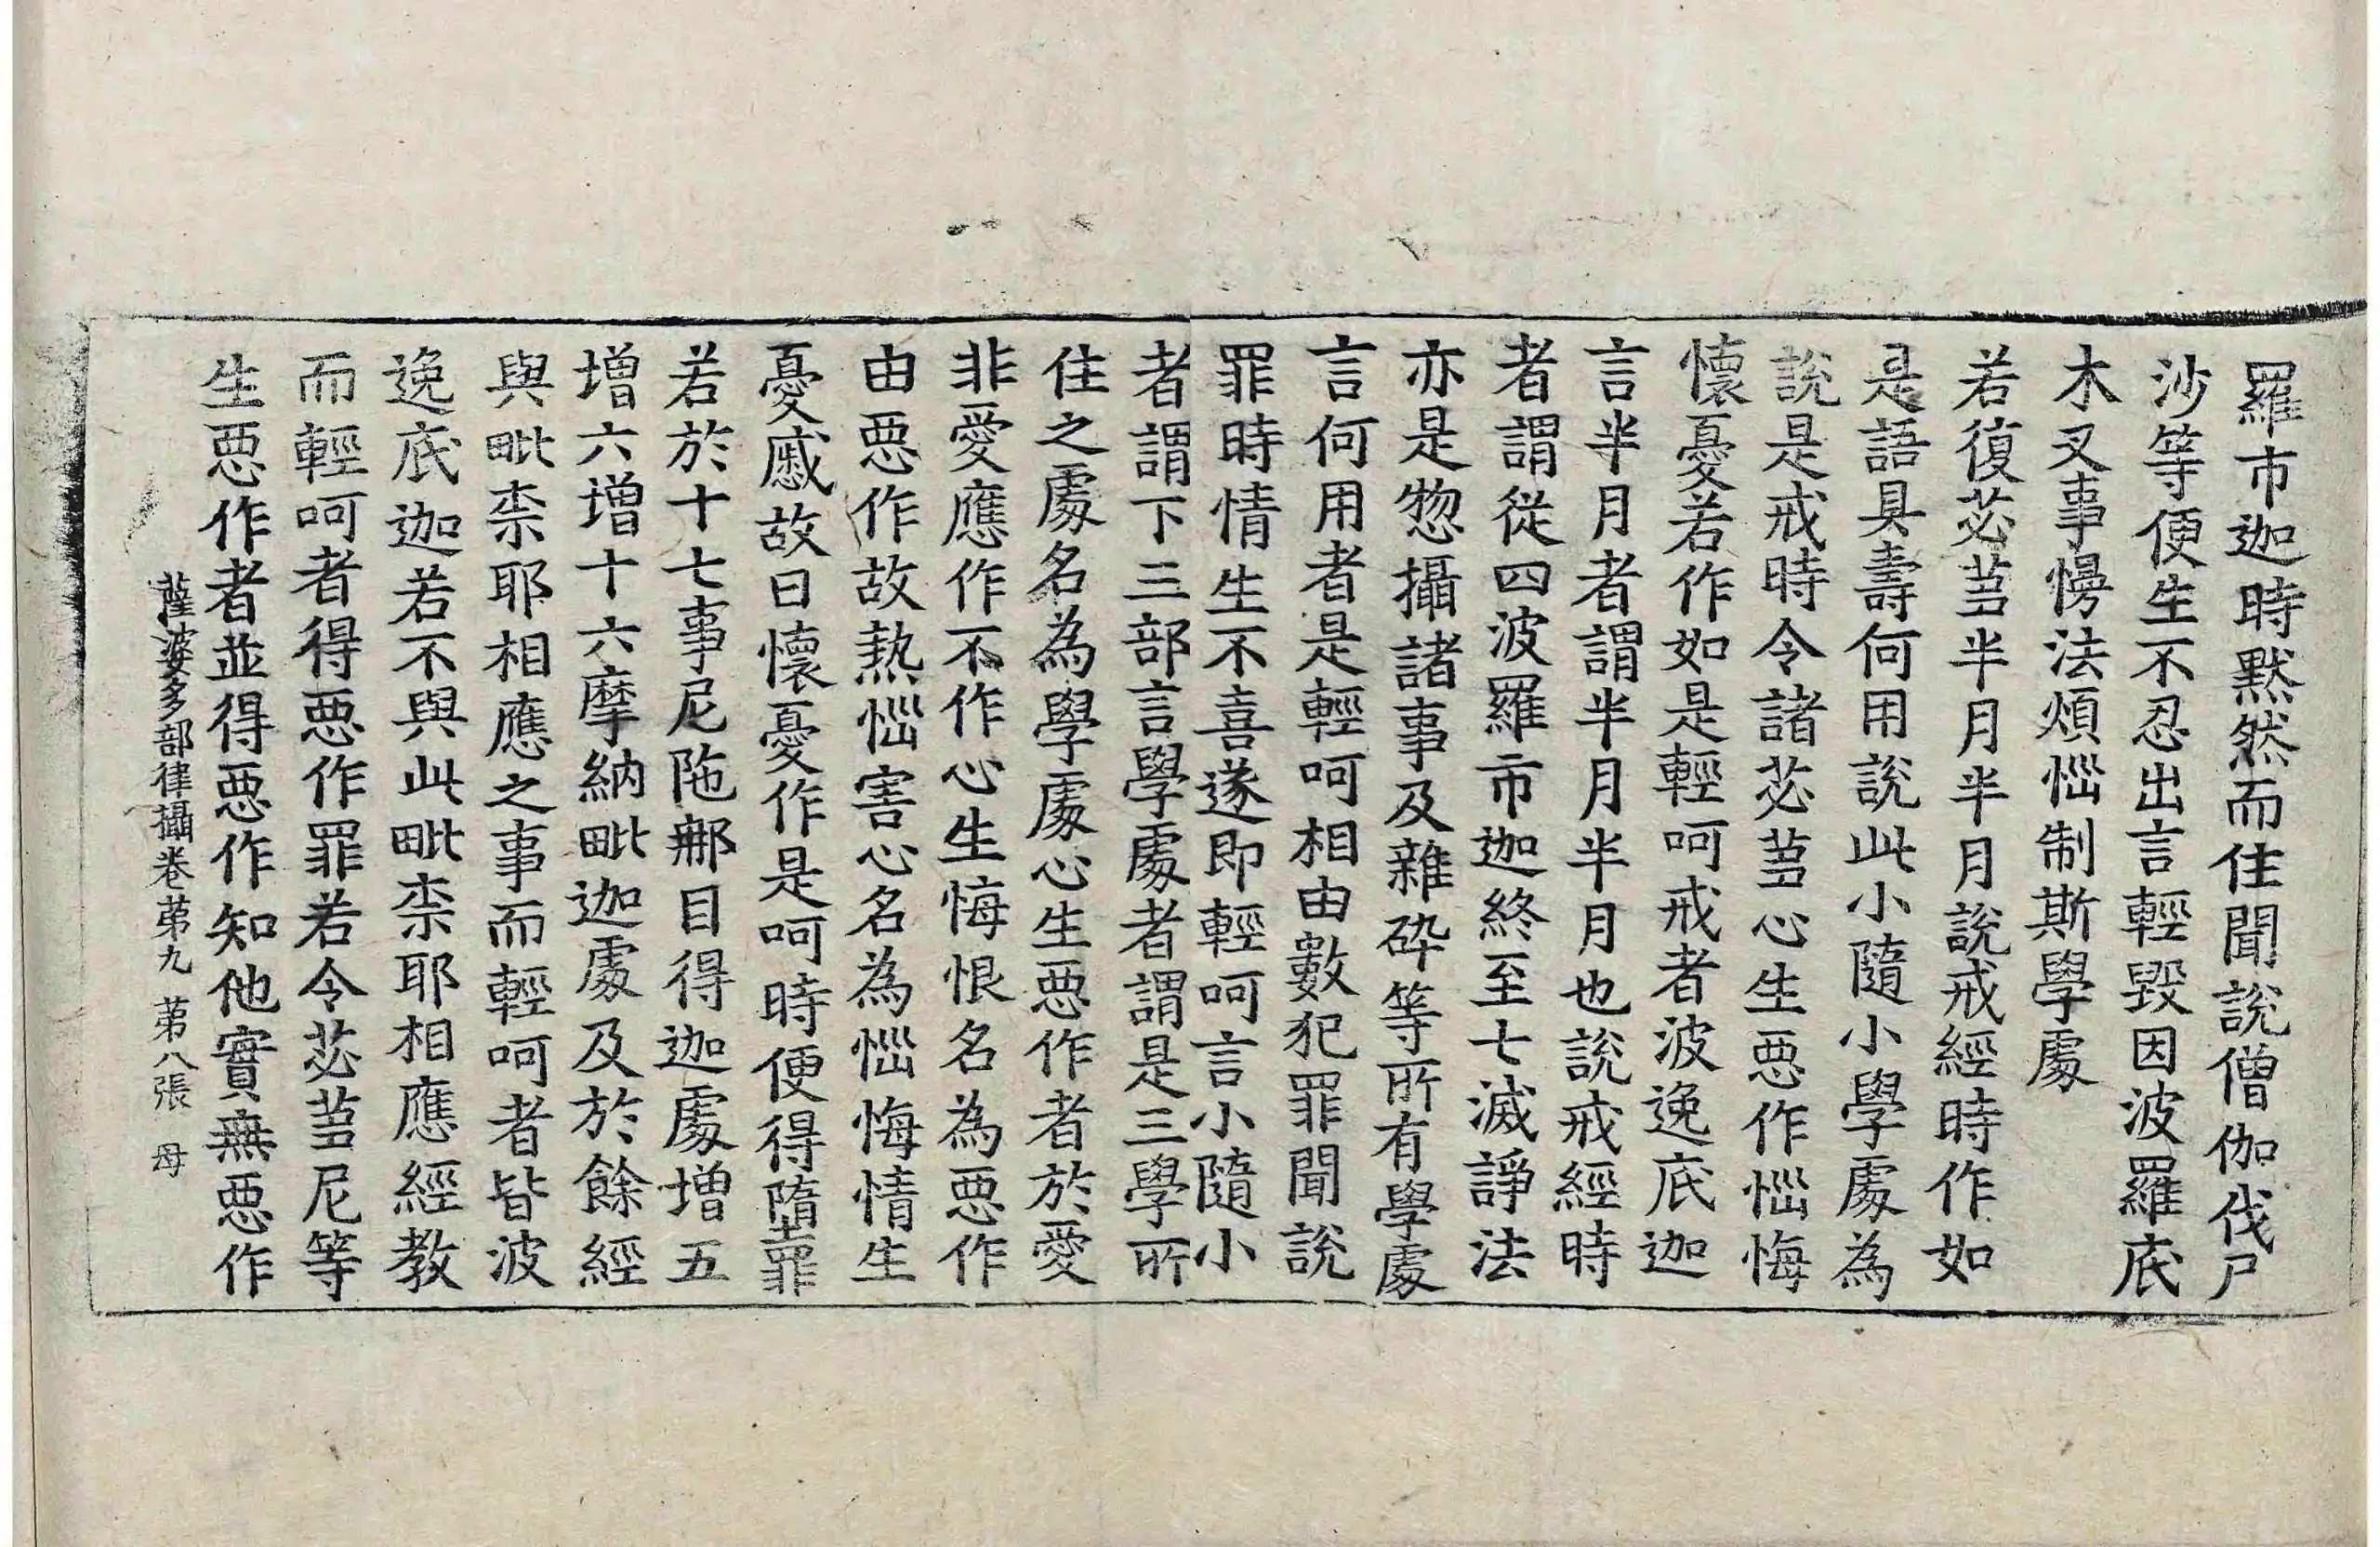 羅市迦時默然而住聞說僧伽伐尸
沙等便生不忍出言輕毀因波羅底
木叉事慢法煩惱制斯學處
若復苾芻半月半月說戒經時作如
是語具壽何用說此小隨小學處為
說是戒時令諸苾芻心生惡作惱悔
懷憂若作如是輕呵戒者波逸底迦
言半月者謂半月半月也說戒經時
者謂從四波羅市迦終至七滅諍法
亦是惣攝諸事及雜碎等所有學處
言何用者是輕呵相由數犯罪聞說
罪時情生不喜遂即輕呵言小隨小
者謂下三部言學處者謂是三學所
住之處名為學處心生惡作者於愛
非愛應作不作心生悔恨名為惡作
由惡作故熱惱害心名為惱悔情生
憂慼故曰懷憂作是呵時便得墮罪
若於十七事尼陁那目得迦處增五
增六增十六摩納毗迦處及於餘經
與毗柰耶相應之事而輕呵者皆波
逸底迦若不與此毗柰耶相應經教
而輕呵者得惡作罪若令苾芻尼等
生惡作者並得惡作知他實無惡作
薩婆多部律攝卷第九 第八張 母